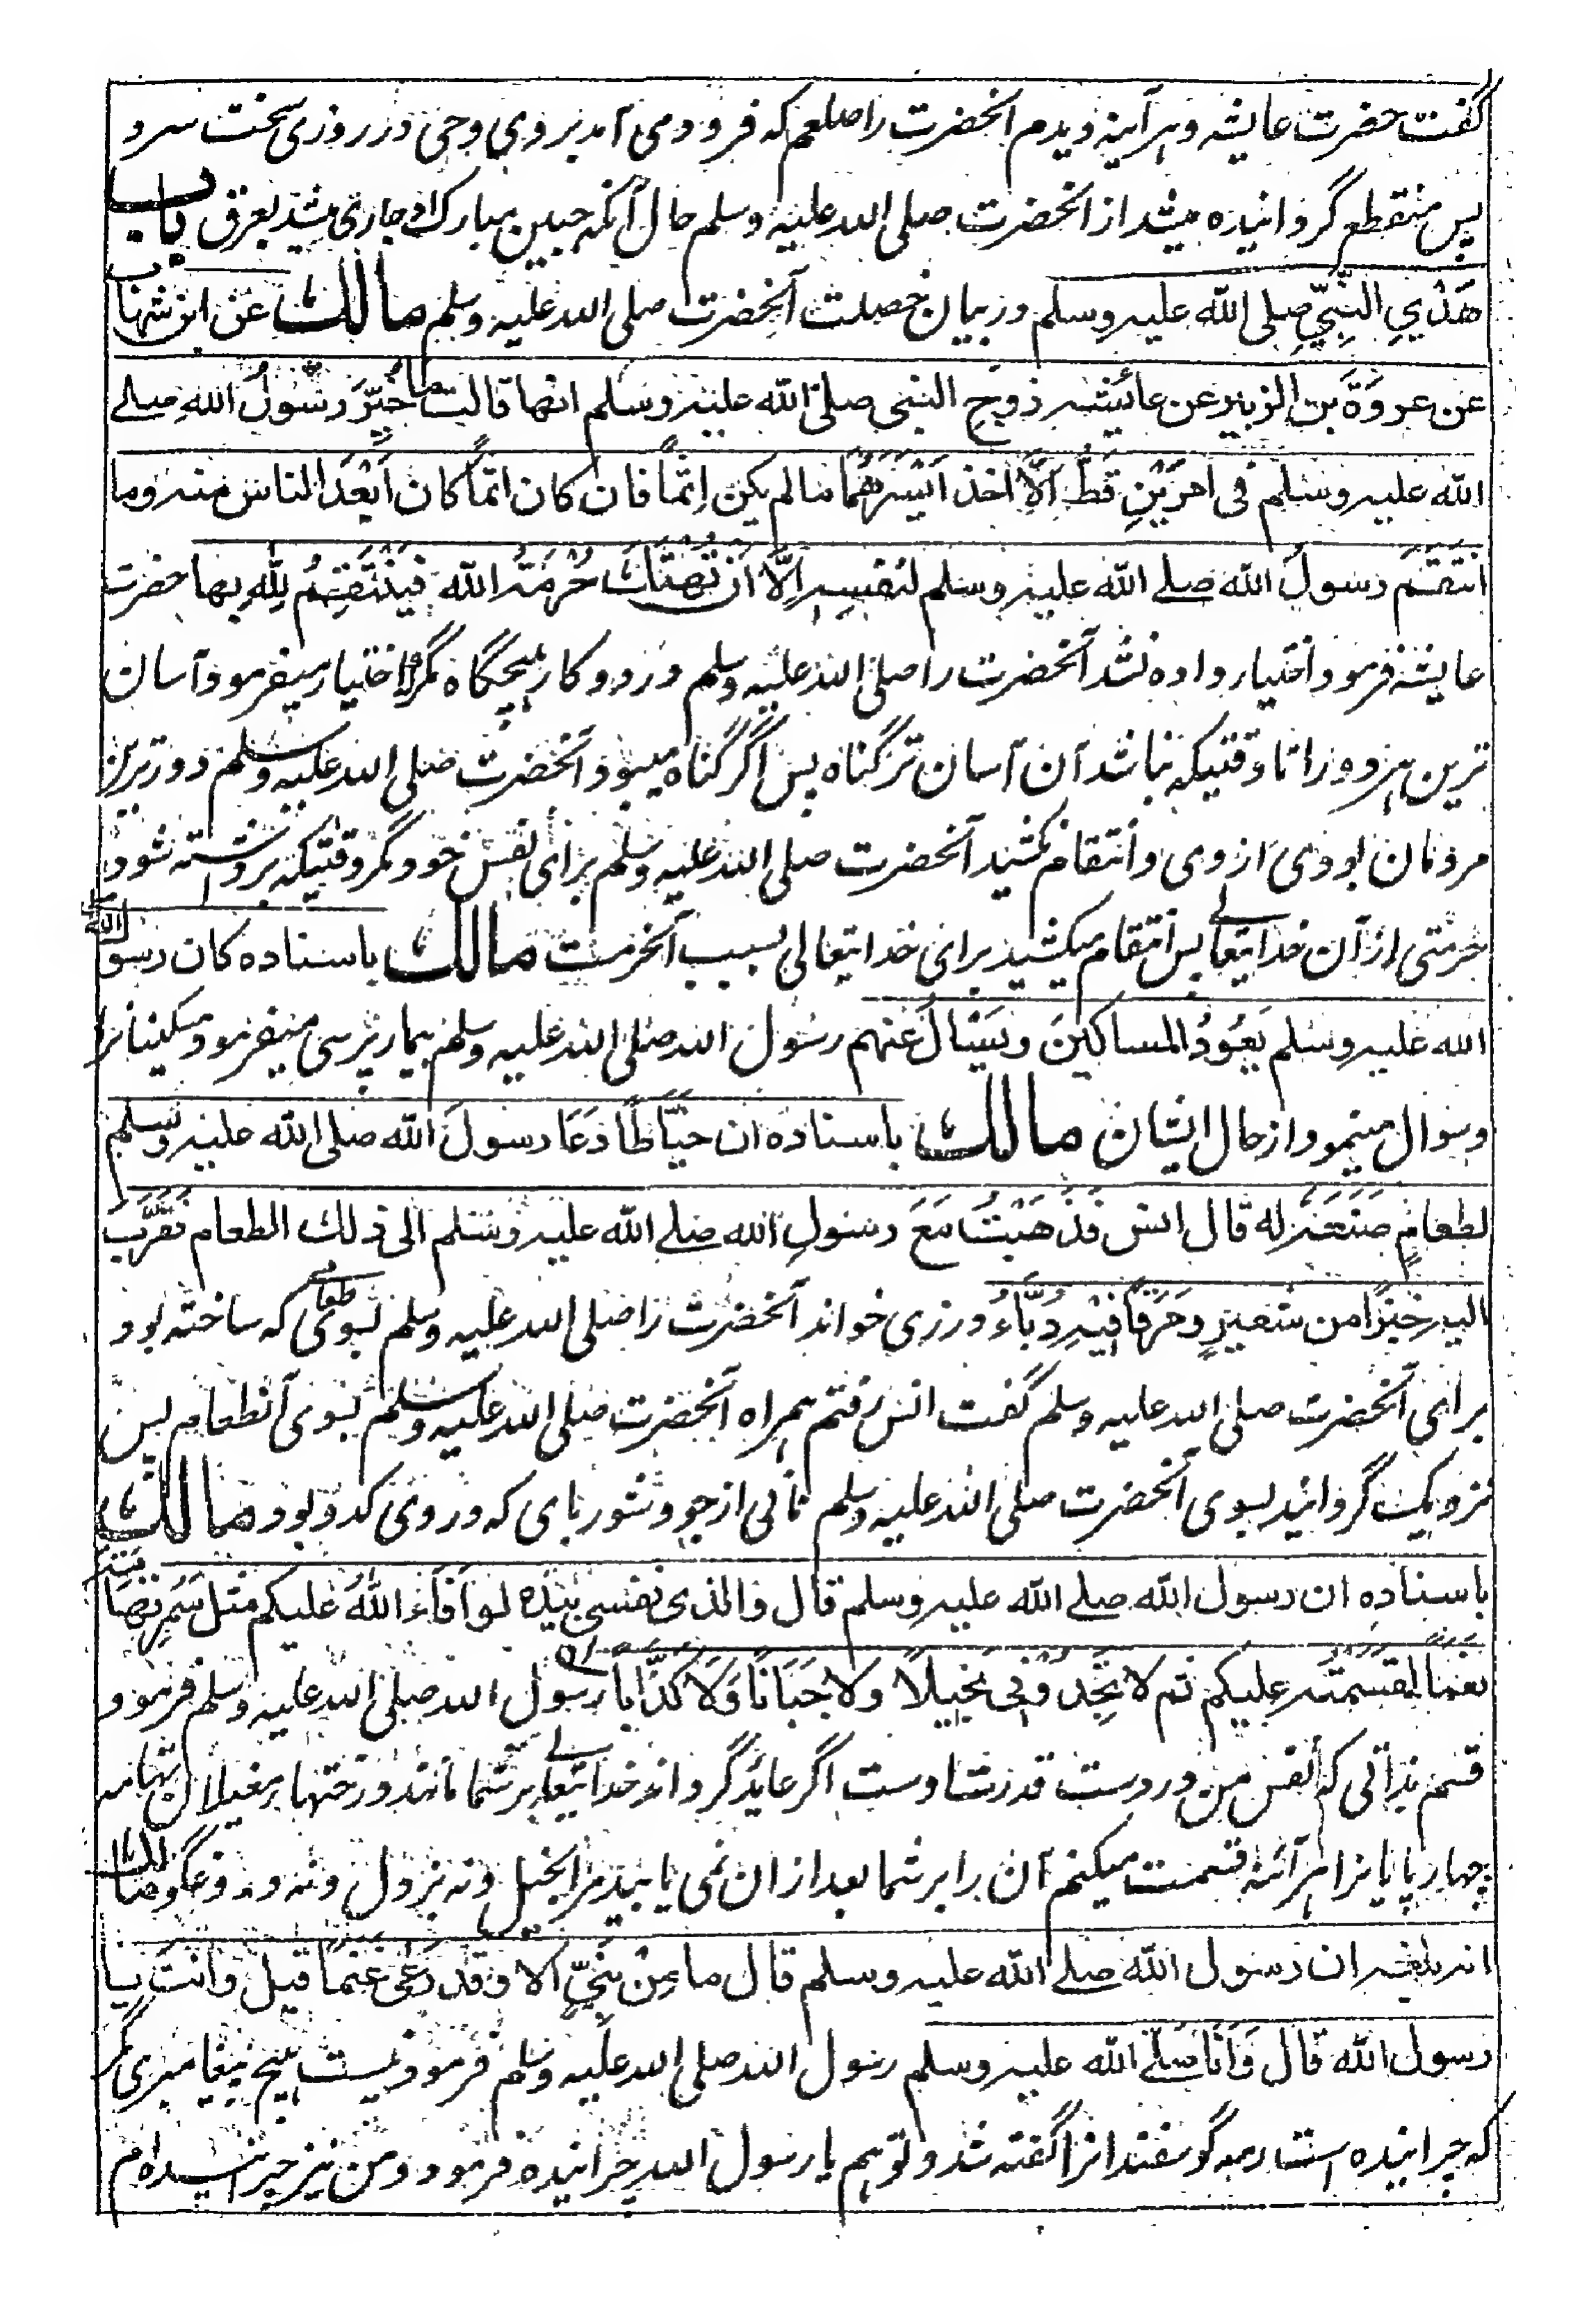 گفت حضرت عایشه و هرآینه دیدم آنحضرت را صلعم که فرود می آمد بروی وحی در روزی سخت سرد
پس منقطع گردانیده میشد از آنحضرت صلی الله علیه وسلم حال آنکه جبین مبارک او جاری میشد بعرق باب
هَدْيِ النَّبِيِّ صلی الله علیه وسلم در بیان خصلت آنحضرت صلی الله علیه وسلم مالك عن ابن شهاب
عن عروة بن الزبیر عن عائیشه زوج النبی صلی الله علیه وسلم انها قالت ما خُیِّرَ رسُولُ اللهِ صلے
الله علیه وسلم فی امرَیْنِ قَطُّ اِلَّا اخذ اَیْسَرَهُمَا ما لم یکن اِثماً فان کان اثماً کان اَبْعَدَ الناس منه وما
انتَقَمَ رسولُ الله صلے الله علیه وسلم لنفسِه اِلَّا اَنْ تُهتَكَ حُرمَةُ الله فَیَنْتَقِمُ لِلّٰهِ بها حضرت
عایشه فرمود اختیار داده نشد آنحضرت را صلی الله علیه وسلم در دو کار هیچگاه مگر اختیار میفرمود آسان
ترین هر دو را تا وقتیکه نباشد آن آسان تر گناه پس اگر گناه میبود آنحضرت صلی الله علیه وسلم دورترین
مردمان بودی از وی و انتقام نکشید آنحضرت صلی الله علیه وسلم برای نفس خود مگر وقتیکه برداشته شود
حرمتی از آن خدایتعالے پس انتقام میکشید برای خدایتعالی بسبب آنحرمت مالك باسناده کان رسول الله صلی
الله علیه وسلم یَعُودُ المساکینَ ویَسْأَلُ عنهم رسول الله صلی الله علیه وسلم بیمار پرسی میفرمود مسکینانرا
وسوال مینمود از حال ایشان مالك باسناده ان خیَّاطاً دَعَا رسولَ الله صلی الله علیه وسلم
لطعامٍ صنعَه له قال انس فذهبْتُ مَعَ رسولِ الله صلے الله علیه وسلم الی ذلك الطعام فقَرَّبَ
الیه خبزًا من شعیرٍ ومَرَقاً فیْهِ دُبَّاءُ درزی خواند آنحضرت را صلی الله علیه وسلم بسوی طعامے که ساخته بود
برای آنحضرت صلی الله علیه وسلم گفت انس رفتم همراه آنحضرت صلی الله علیه وسلم بسوی آنطعام پس
نزدیک گردانید بسوی آنحضرت صلی الله علیه وسلم نانی از جو و شوربای که در وی کدو بود مالك
باسنادِه ان رسول الله صلے الله علیه وسلم قال والذی نفسی بیَدِه لو اَفَاءَ اللهُ علیکم مثل سَمُرِ تِهَامَة
نعَمًا لقسَمتُه علیکم ثم لا تجِدُونِی بخیلًا ولا جبَانًا وَلَا کذَّابًا رسول الله صلی الله علیه وسلم فرمود
قسم بذاتی که نفس من در دست قدرت اوست اگر عاید گرداند خدایتعالے بر شما مانند درختهای مغیلان تهامه
چهارپایانرا هرآئنه قسمت میکنم آن را بر شما بعد از ان نمی یابید مرا بخیل و نه بزدل و نه دروغگو مالك
انه بلغه ان رسول الله صلے الله علیه وسلم قال ما مِنْ نبیٍّ الا وقد رَعٰی غنَمًا قیل وانتَ یا
رسول الله قال وَاَنَا صلے الله علیه وسلم رسول الله صلی الله علیه وسلم فرمود نیست هیچ پیغامبری مگر
که چرانیده است رمه گوسفندانرا گفته شد و تو هم یا رسول الله چرانیده فرمود و من نیز چرانیده ام